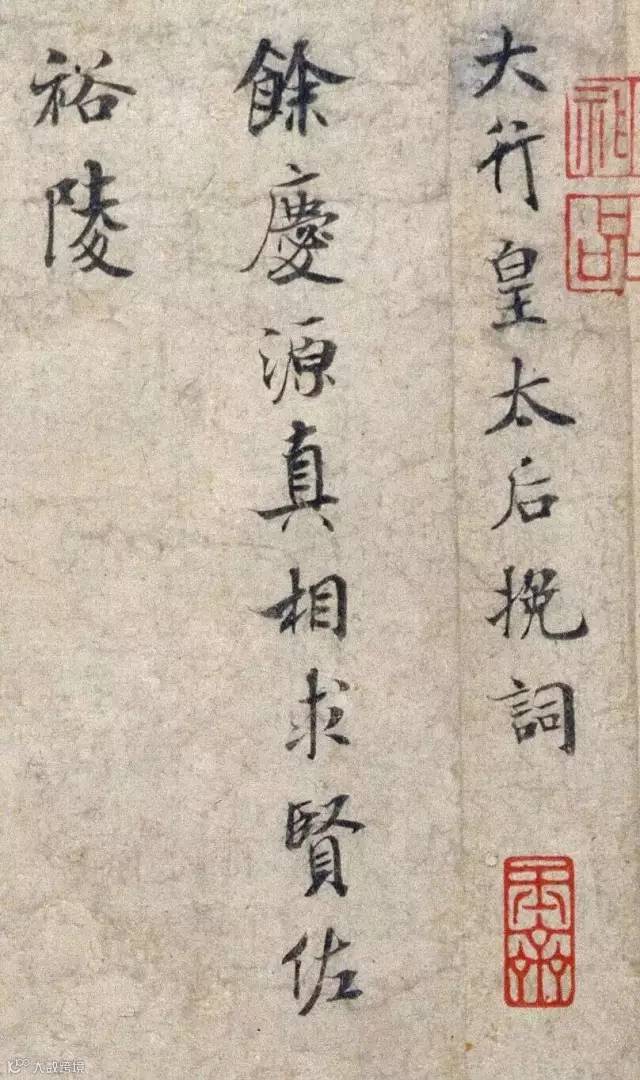 大行皇太后挽詞
餘慶源真相求賢佐
裕陵
大数跨境